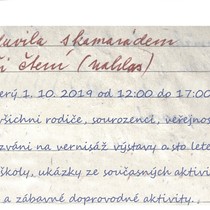 luvila s kamarádem
čtení (nahlas)
erý 1. 10. 2019 od 12:00 do 17:00
všichni rodiče, sourozenci, veřejnos
zváni na vernisáž výstavy a sto lete
školy, ukázky ze současných aktivi
a zábavné doprovodné aktivity.